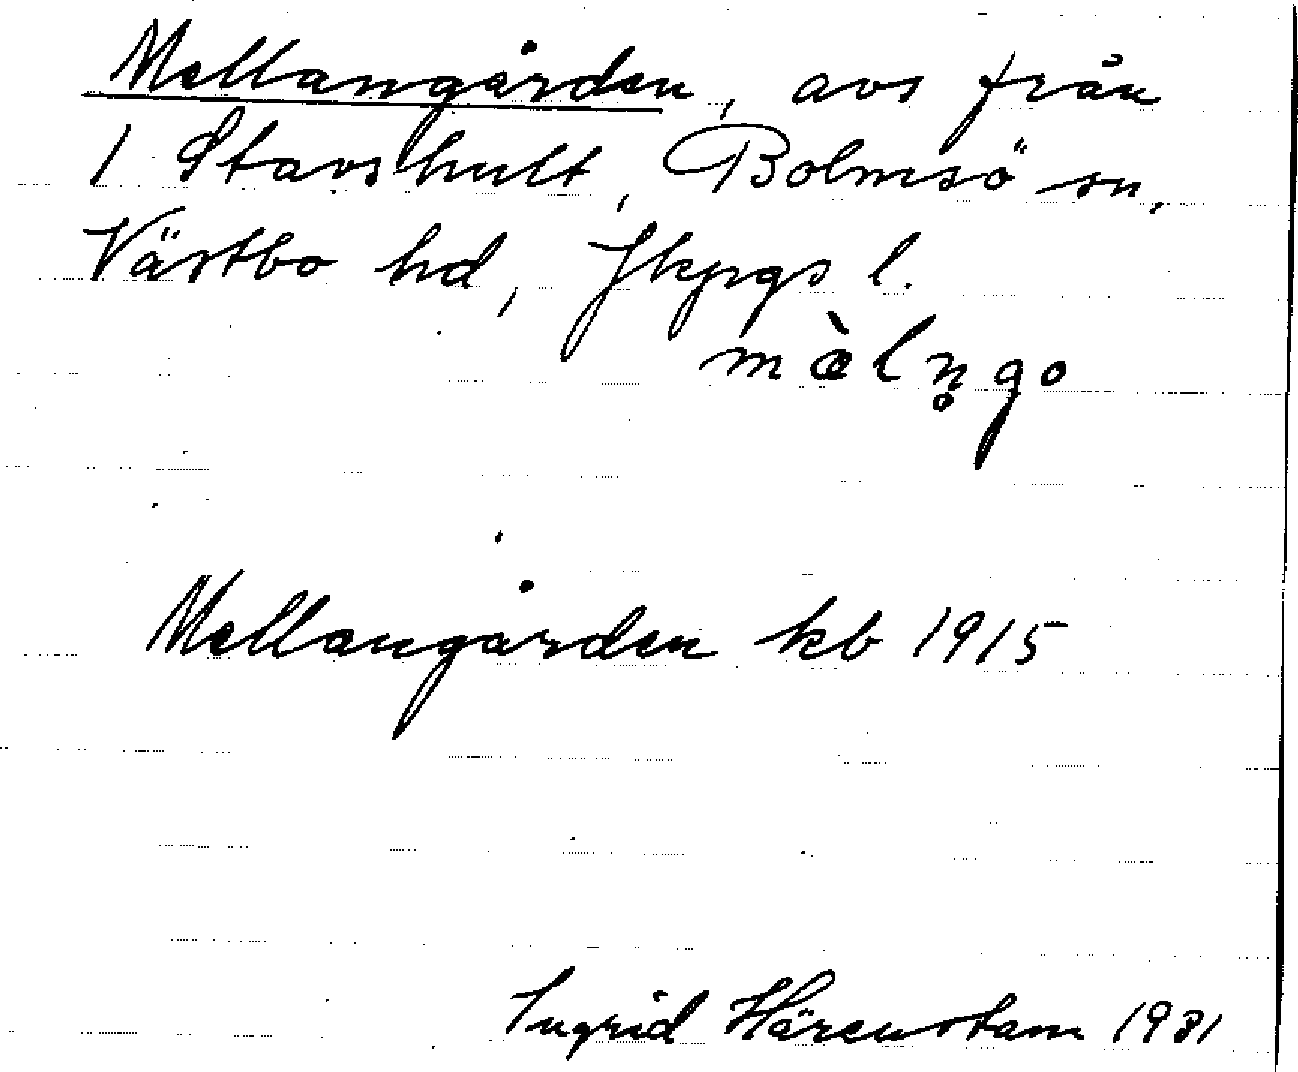 Mellangården, avs från
1 Stavshult, Bolmsö sn,
Västbo hd, Jkpgs l.
mæ̀ln̥go
Mellangården kb 1915
Ingrid Härenstam 1931